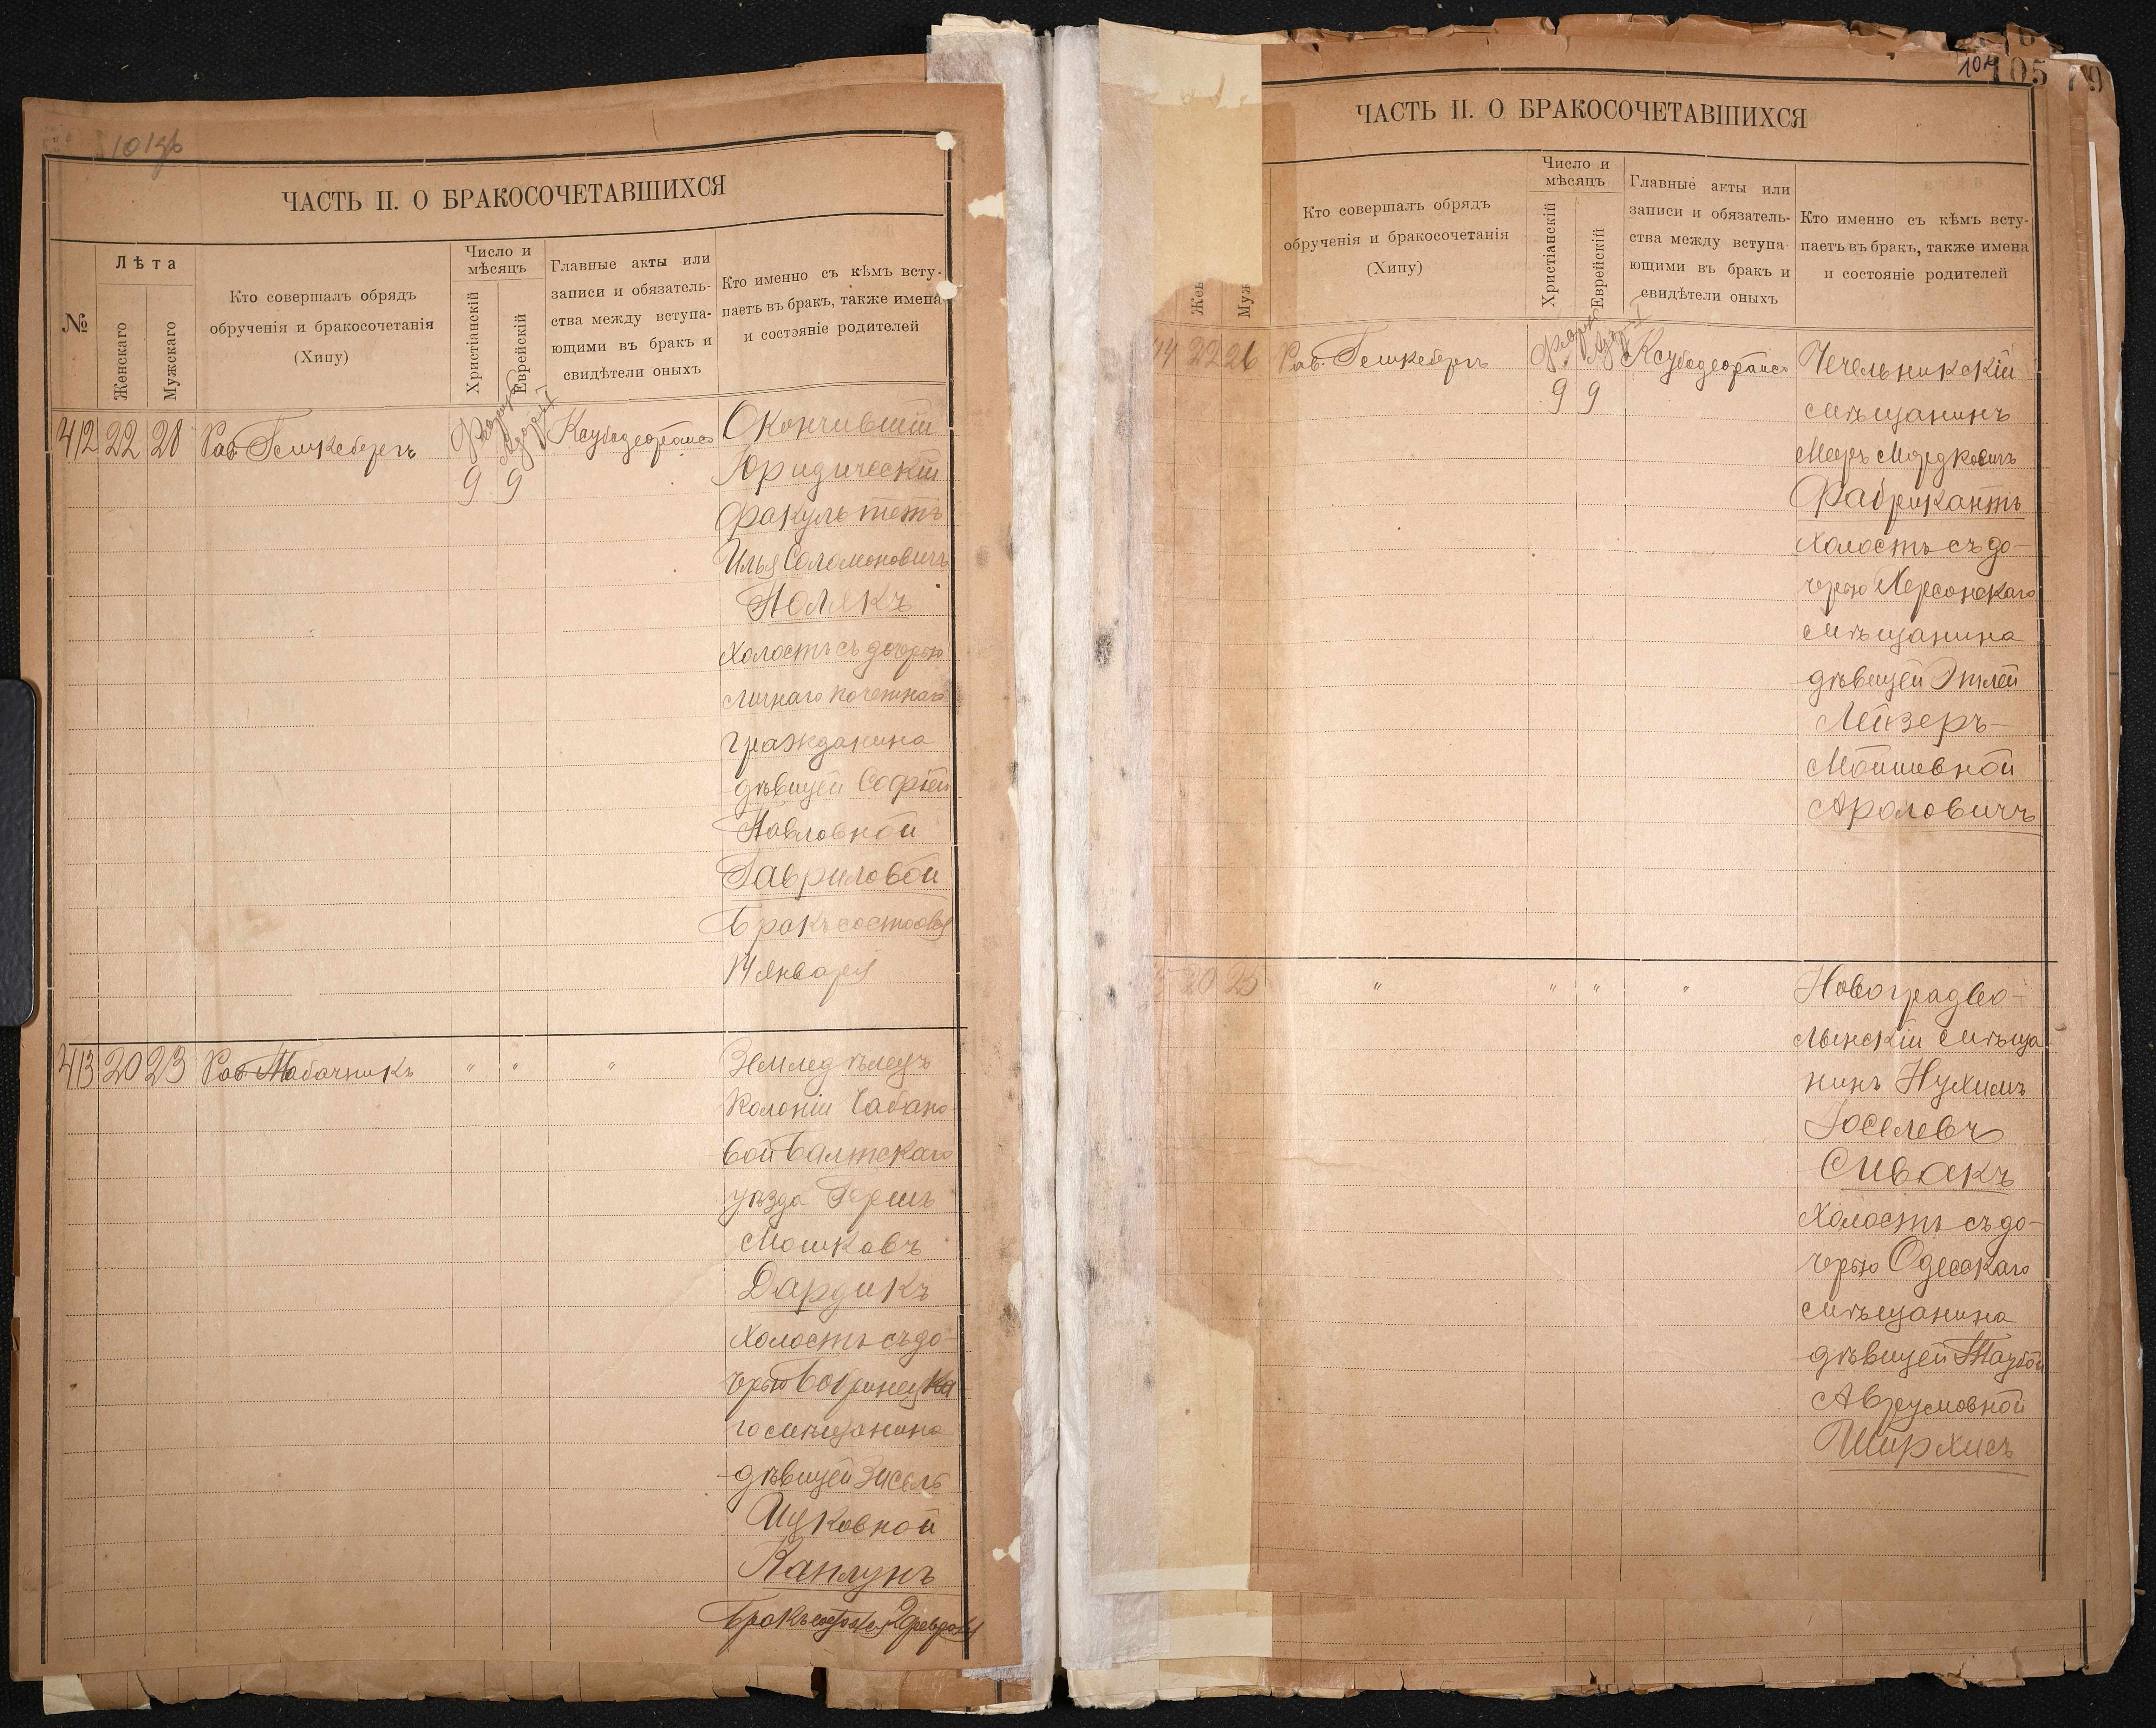 ЧАСТЬ II. О БРАКОСОЧЕТАВШИХСЯ
№
Лѣта
Женскаго
Мужскаго
Кто совершалъ обрядъ
обрученія и бракосочетанія
(Хипу)
Число и
мѣсяцъ
Христіанскій
Еврейскій
Главные акты или
записи и обязатель-
ства между вступа-
ющими въ бракъ и
свидѣтели оныхъ
Кто именно съ кѣмъ всту-
паетъ въ бракъ, также имена
и состояніе родителей
412 22 28 Рав. Гешкебергъ
9 9
Окончившій
Юридическій
факультетъ
Илья Соломоновичъ
Полякъ
холостъ съ дочерью
личнаго почетнаго
гражданина
дѣвицей Софіей
Павловной
Гавриловой
Бракъ состоялся
14 Января
413 20 23 Рав. Табачникъ " " "
Земледѣлецъ
колоніи Чабано-
вой Балтскаго
уѣзда Гершъ
Мошковъ
Дардикъ
холостъ съ до-
черью Бобринецка
го мѣщанина
дѣвицей Зисель
Ицковной
Каплунъ
Бракъ состоялся 2 февраля
104
105
79
ЧАСТЬ II. О БРАКОСОЧЕТАВШИХСЯ
Жен
Муж
Кто совершалъ обрядъ
обрученія и бракосочетанія
(Хипу)
Число и
мѣсяцъ
Христіанскій
Еврейскій
Главные акты или
записи и обязатель-
ства между вступа-
ющими въ бракъ и
свидѣтели оныхъ
Кто именно съ кѣмъ всту-
паетъ въ бракъ, также имена
и состояніе родителей
14 22 26 Рав. Гешкебергъ
9 9
Чечельникскій
мѣщанинъ
Мееръ Мордковичъ
Фабрикантъ
холостъ съ до-
черью Херсонскаго
мѣщанина
дѣвицей Этлей
Лейзеръ-
Мойшевной
Ароловичъ
20 25 " " " "
Новоградво-
лынскій мѣща
нинъ Нухимъ
Іоселевъ
Сивакъ
холостъ съ до-
черью Одесскаго
мѣщанина
дѣвицей Таубой
Аврумовной
Ширхисъ